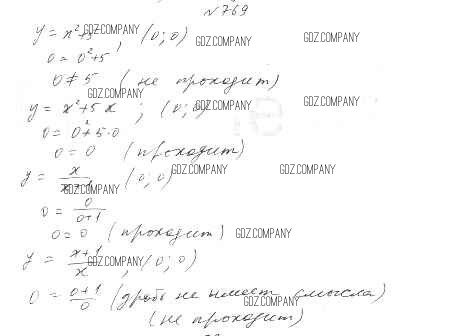 №769
y = x²+5, (0; 0)
0 = 0²+5
0 ≠ 5 (не проходит)
y = x²+5x ; (0; 0)
0 = 0²+5·0
0 = 0 (проходит)
y = x/(x+1) (0; 0)
0 = 0/(0+1)
0 = 0 (проходит)
y = (x+1)/x , (0; 0)
0 = (0+1)/0 (дробь не имеет смысла)
(не проходит)
GDZ.COMPANY
GDZ.COMPANY
GDZ.COMPANY
GDZ.COMPANY
GDZ.COMPANY
GDZ.COMPANY
GDZ.COMPANY
GDZ.COMPANY
GDZ.COMPANY
GDZ.COMPANY
GDZ.COMPANY
GDZ.COMPANY